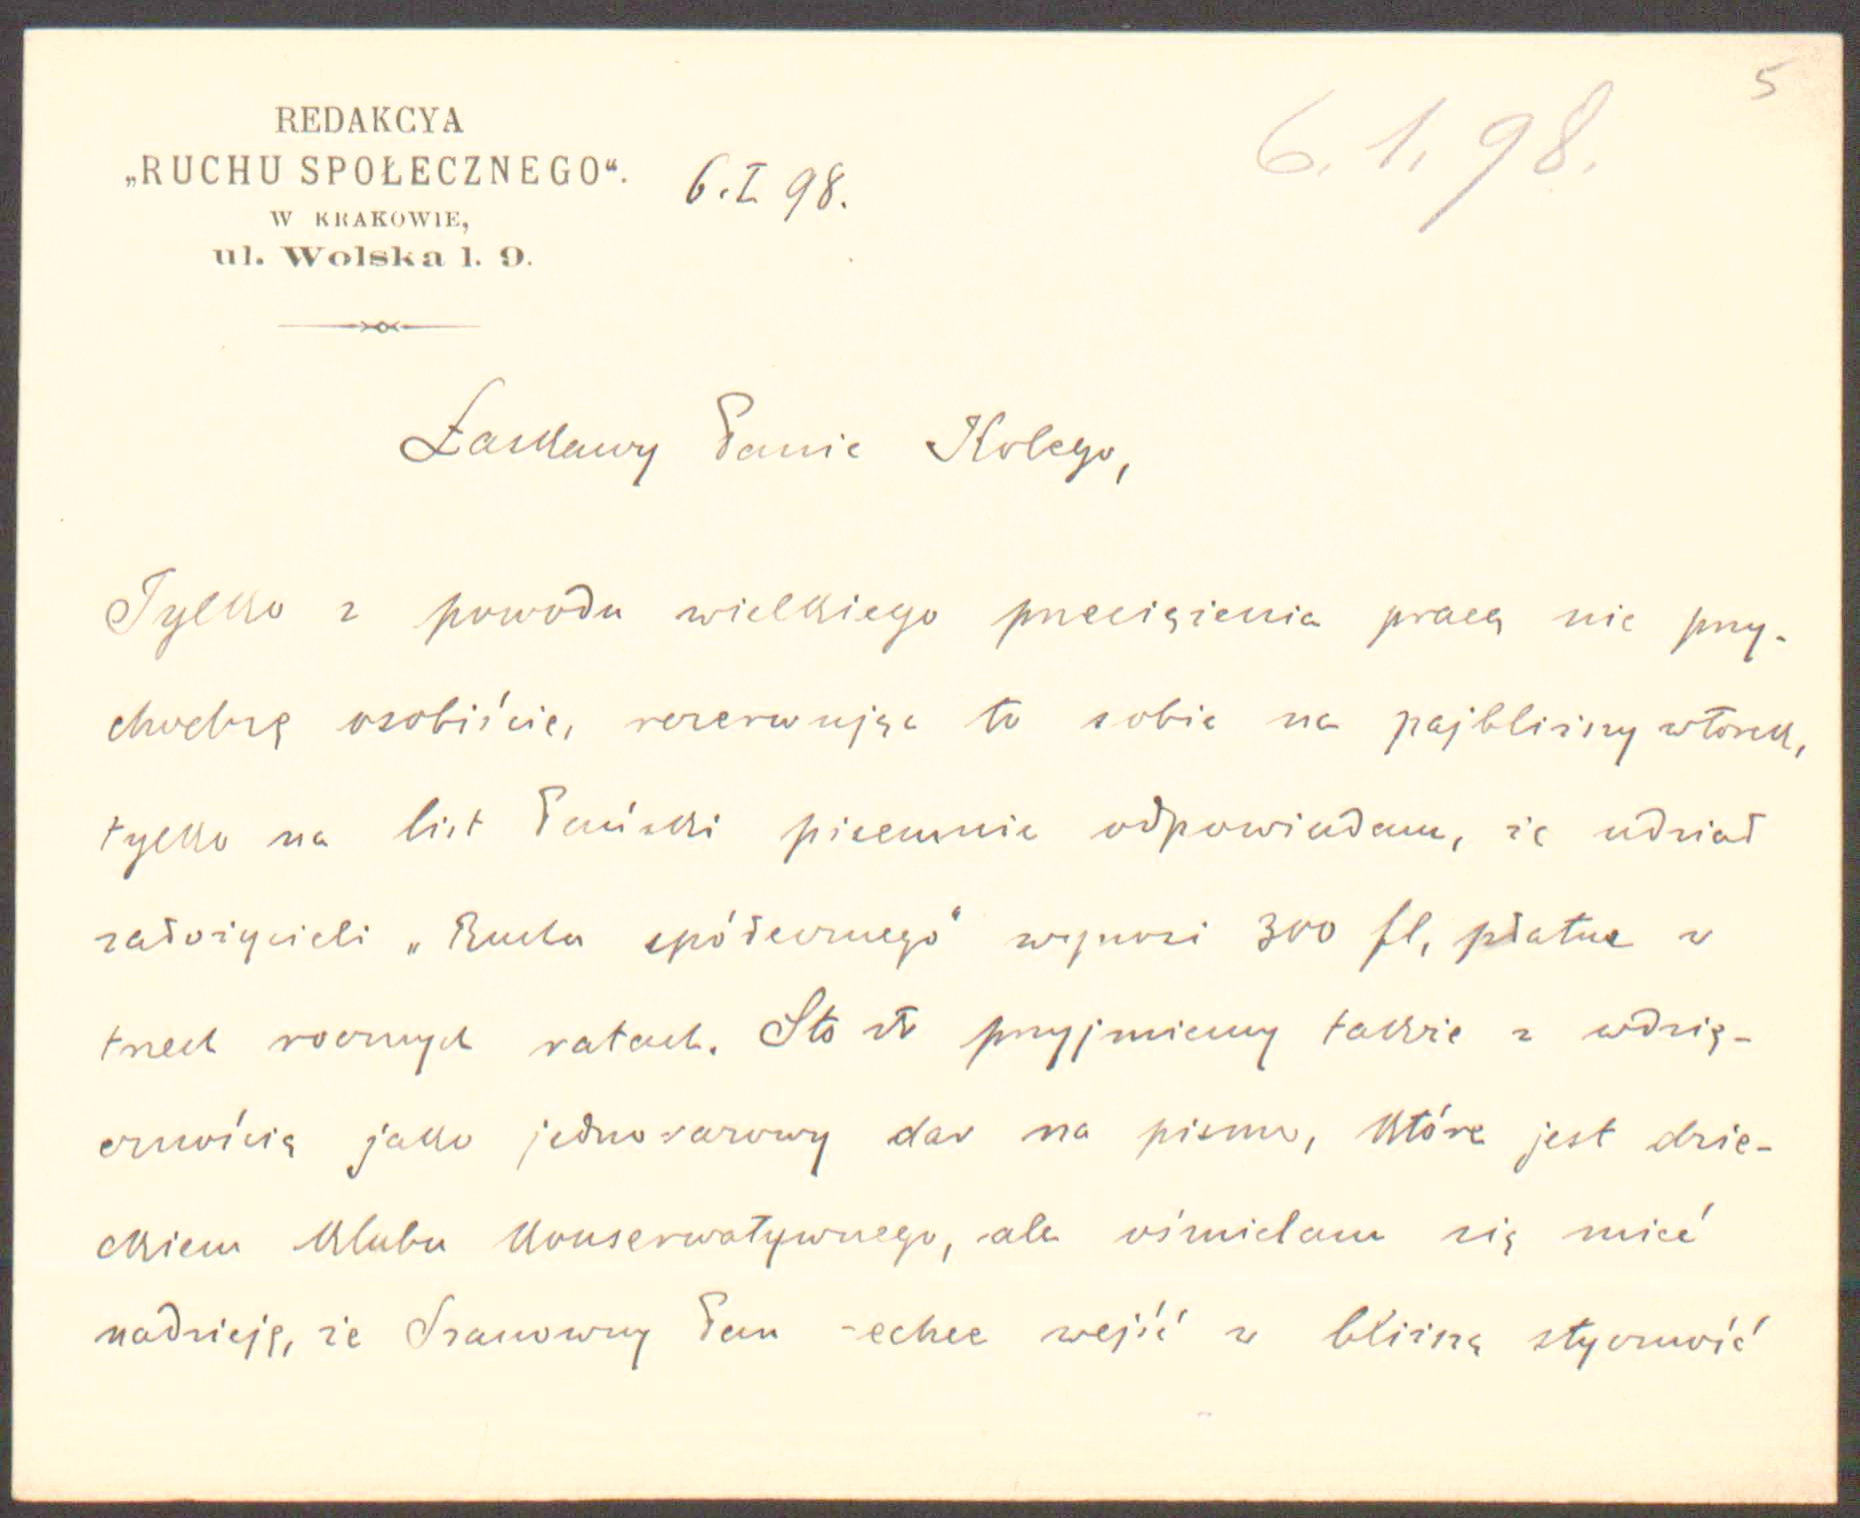 5
REDAKCYA
„RUCHU SPOŁECZNEGO“.
W KRAKOWIE,
ul. Wolska l. 9.
6. I 98.
6. 1. 98.
Łaskawy Panie Kolego,
Tylko z powodu wielkiego przeciążenia pracą nie przy-
chodzę osobiście, rezerwując to sobie na najbliższy wtorek,
tylko na list Pański pisemnie odpowiadam, że udział
założycieli „Ruchu społecznego“ wynosi 300 fl, płatne w
trzech rocznych ratach. Sto zł przyjmiemy także z wdzię-
cznością jako jednorazowy dar na pismo, które jest dzie-
ckiem klubu konserwatywnego, ale ośmielam się mieć
nadzieję, że Szanowny Pan zechce wejść w bliższą styczność